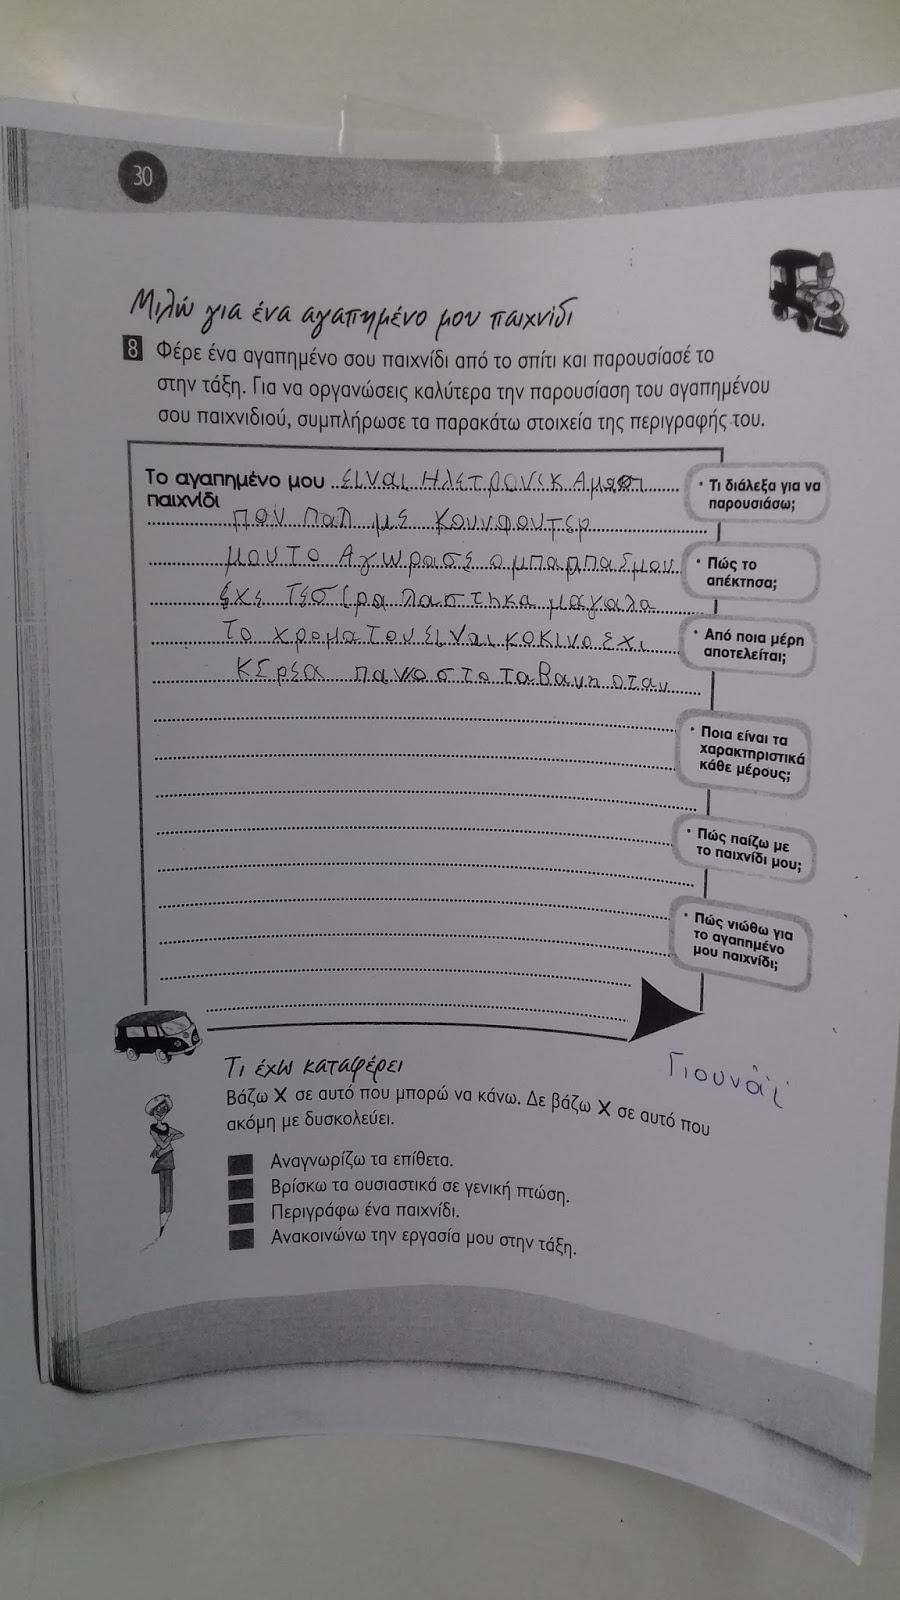 30
Μιλώ για ένα αγαπημένο μου παιχνίδι
8 Φέρε ένα αγαπημένο σου παιχνίδι από το σπίτι και παρουσίασέ το
στην τάξη. Για να οργανώσεις καλύτερα την παρουσίαση του αγαπημένου
σου παιχνιδιού, συμπλήρωσε τα παρακάτω στοιχεία της περιγραφής του.
Το αγαπημένο μου παιχνίδι είναι Ηλετρονικ
• Τι διάλεξα για να
παρουσιάσω;
που παη με κουνφουντερ
μου το Αγωρασε ο μπαρπασμου
• Πώς το
απέκτησα;
εχε τεσιρα λαστηκα μαγαλα
το χρομα του ειναι κοκινο εχι
• Από ποια μέρη
αποτελείται;
κερεα πανο στο ταβανη οταν
• Ποια είναι τα
χαρακτηριστικά
κάθε μέρους;
• Πώς παίζω με
το παιχνίδι μου;
• Πώς νιώθω για
το αγαπημένο
μου παιχνίδι;
Τι έχω καταφέρει
Γιουνάι
Βάζω Χ σε αυτό που μπορώ να κάνω. Δε βάζω Χ σε αυτό που
ακόμη με δυσκολεύει.
Αναγνωρίζω τα επίθετα.
Βρίσκω τα ουσιαστικά σε γενική πτώση.
Περιγράφω ένα παιχνίδι.
Ανακοινώνω την εργασία μου στην τάξη.